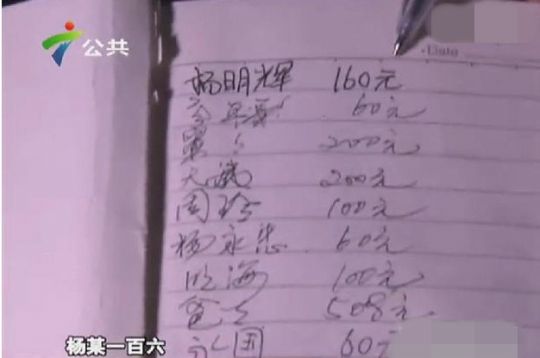 公共
Date
杨明辉 160元
60元
200元
200元
周玲 100元
杨永忠 60元
海 100元
爸爸 508元
60元
杨某一百六